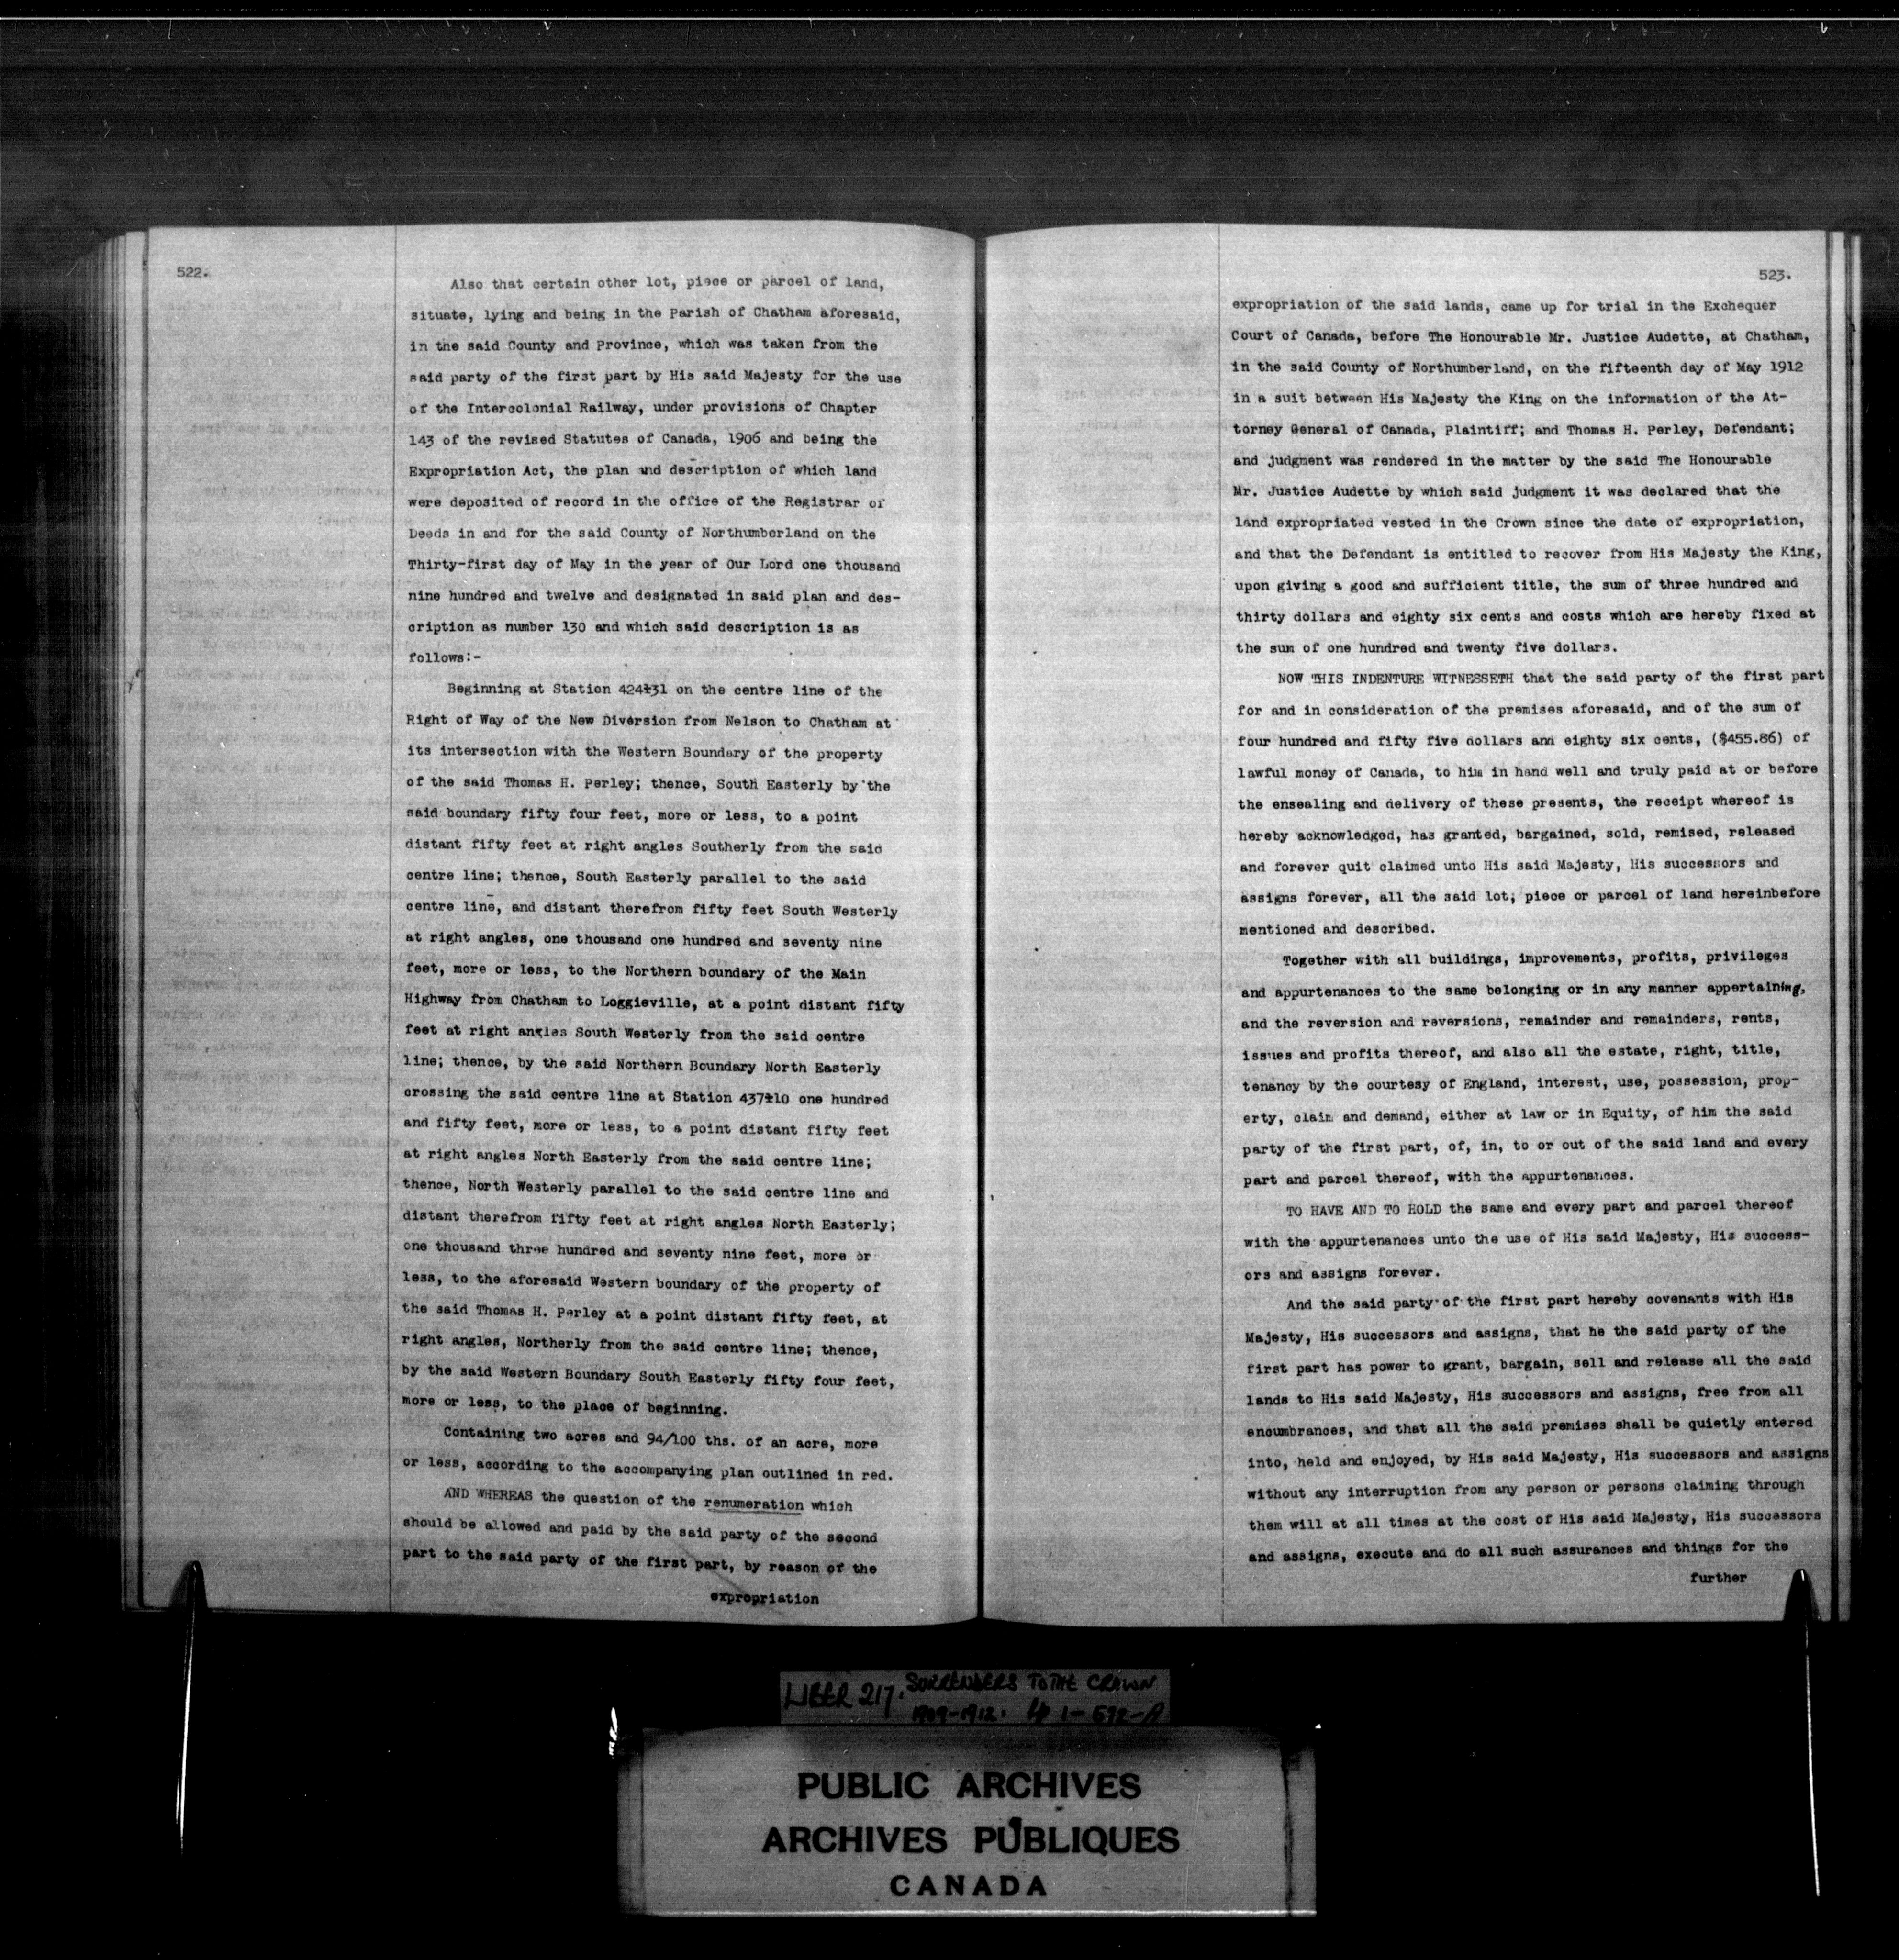 522.
Also that certain other lot, piece or parcel of land,
situate, lying and being in the Parish of Chatham aforesaid,
in the said County and Province, which was taken from the
said party of the first part by His said Majesty for the use
of the Intercolonial Railway, under provisions of Chapter
143 of the revised Statutes of Canada, 1906 and being the
Expropriation Act, the plan and description of which land
were deposited of record in the office of the Registrar of
Deeds in and for the said County of Northumberland on the
Thirty-first day of May in the year of Our Lord one thousand
nine hundred and twelve and designated in said plan and des-
cription as number 130 and which said description is as
follows:-
Beginning at Station 424+31 on the centre line of the
Right of Way of the New Diversion from Nelson to Chatham at
its intersection with the Western Boundary of the property
of the said Thomas H. Perley; thence, South Easterly by the
said boundary fifty four feet, more or less, to a point
distant fifty feet at right angles Southerly from the said
centre line; thence, South Easterly parallel to the said
centre line, and distant therefrom fifty feet South Westerly
at right angles, one thousand one hundred and seventy nine
feet, more or less, to the Northern boundary of the Main
Highway from Chatham to Loggieville, at a point distant fifty
feet at right angles South Westerly from the said centre
line; thence, by the said Northern Boundary North Easterly
crossing the said centre line at Station 437+10 one hundred
and fifty feet, more or less, to a point distant fifty feet
at right angles North Easterly from the said centre line;
thence, North Westerly parallel to the said centre line and
distant therefrom fifty feet at right angles North Easterly;
one thousand three hundred and seventy nine feet, more or
less, to the aforesaid Western boundary of the property of
the said Thomas H. Perley at a point distant fifty feet, at
right angles, Northerly from the said centre line; thence,
by the said Western Boundary South Easterly fifty four feet,
more or less, to the place of beginning.
Containing two acres and 94/100 ths. of an acre, more
or less, according to the accompanying plan outlined in red.
AND WHEREAS the question of the renumeration which
should be allowed and paid by the said party of the second
part to the said party of the first part, by reason of the
expropriation
523.
expropriation of the said lands, came up for trial in the Exchequer
Court of Canada, before The Honourable Mr. Justice Audette, at Chatham,
in the said County of Northumberland, on the fifteenth day of May 1912
in a suit between His Majesty the King on the information of the At-
torney General of Canada, Plaintiff; and Thomas H. Perley, Defendant;
and judgment was rendered in the matter by the said The Honourable
Mr. Justice Audette by which said judgment it was declared that the
land expropriated vested in the Crown since the date of expropriation,
and that the Defendant is entitled to recover from His Majesty the King,
upon giving a good and sufficient title, the sum of three hundred and
thirty dollars and eighty six cents and costs which are hereby fixed at
the sum of one hundred and twenty five dollars.
NOW THIS INDENTURE WITNESSETH that the said party of the first part
for and in consideration of the premises aforesaid, and of the sum of
four hundred and fifty five dollars and eighty six cents, ($455.86) of
lawful money of Canada, to him in hand well and truly paid at or before
the ensealing and delivery of these presents, the receipt whereof is
hereby acknowledged, has granted, bargained, sold, remised, released
and forever quit claimed unto His said Majesty, His successors and
assigns forever, all the said lot, piece or parcel of land hereinbefore
mentioned and described.
Together with all buildings, improvements, profits, privileges
and appurtenances to the same belonging or in any manner appertaining,
and the reversion and reversions, remainder and remainders, rents,
issues and profits thereof, and also all the estate, right, title,
tenancy by the courtesy of England, interest, use, possession, prop-
erty, claim and demand, either at law or in Equity, of him the said
party of the first part, of, in, to or out of the said land and every
part and parcel thereof, with the appurtenances.
TO HAVE AND TO HOLD the same and every part and parcel thereof
with the appurtenances unto the use of His said Majesty, His success-
ors and assigns forever.
And the said party of the first part hereby covenants with His
Majesty, His successors and assigns, that he the said party of the
first part has power to grant, bargain, sell and release all the said
lands to His said Majesty, His successors and assigns, free from all
encumbrances, and that all the said premises shall be quietly entered
into, held and enjoyed, by His said Majesty, His successors and assigns
without any interruption from any person or persons claiming through
them will at all times at the cost of His said Majesty, His successors
and assigns, execute and do all such assurances and things for the
further
LIBER 217. SURRENDERS TO THE CROWN
1909-1912. pp 1-592-A
PUBLIC ARCHIVES
ARCHIVES PUBLIQUES
CANADA